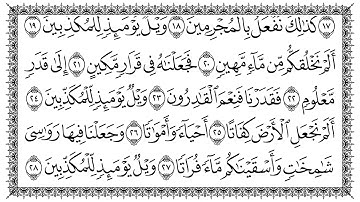 ﴿١٧﴾ كَذَٰلِكَ نَفْعَلُ بِالْمُجْرِمِينَ ﴿١٨﴾ وَيْلٌ يَوْمَئِذٍ لِّلْمُكَذِّبِينَ ﴿١٩﴾
أَلَمْ نَخْلُقكُّم مِّن مَّاءٍ مَّهِينٍ ﴿٢٠﴾ فَجَعَلْنَاهُ فِي قَرَارٍ مَّكِينٍ ﴿٢١﴾ إِلَىٰ قَدَرٍ
مَّعْلُومٍ ﴿٢٢﴾ فَقَدَرْنَا فَنِعْمَ الْقَادِرُونَ ﴿٢٣﴾ وَيْلٌ يَوْمَئِذٍ لِّلْمُكَذِّبِينَ ﴿٢٤﴾
أَلَمْ نَجْعَلِ الْأَرْضَ كِفَاتًا ﴿٢٥﴾ أَحْيَاءً وَأَمْوَاتًا ﴿٢٦﴾ وَجَعَلْنَا فِيهَا رَوَاسِيَ
شَامِخَاتٍ وَأَسْقَيْنَاكُم مَّاءً فُرَاتًا ﴿٢٧﴾ وَيْلٌ يَوْمَئِذٍ لِّلْمُكَذِّبِينَ ﴿٢٨﴾